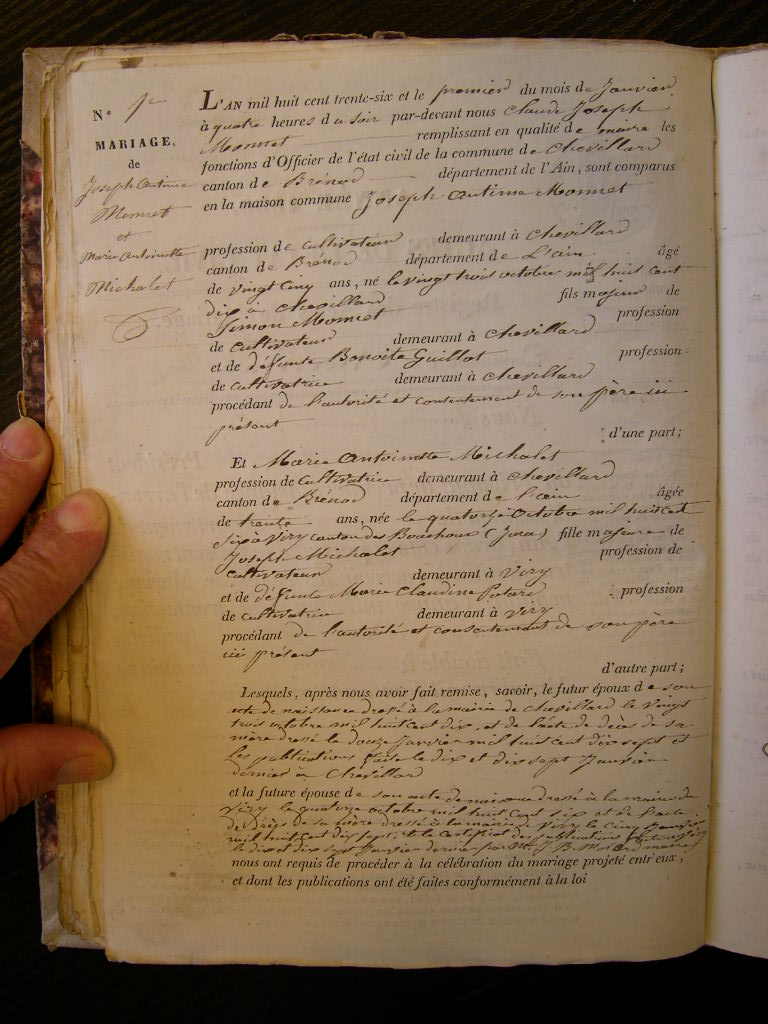 N° 1er
MARIAGE.
de
Joseph Antime
Monnet
et
Marie Antoinette
Michalet
L'AN mil huit cent trente-six et le premier du mois de Janvier
à quatre heures du soir par-devant nous Claude Joseph
Monnet remplissant en qualité de maire les
fonctions d'Officier de l'état civil de la commune de Chevillard
canton de Brénod département de l'Ain, sont comparus
en la maison commune Joseph Antime Monnet
profession de cultivateur demeurant à Chevillard
canton de Brénod département de L'ain âgé
de vingt cinq ans, né le vingt trois octobre mil huit cent
dix à Chevillard fils majeur de
Simon Monnet profession
de cultivateur demeurant à Chevillard
et de défunte Benoite Guillot profession
de cultivatrice demeurant à Chevillard
procédant de l'autorité et consentement de son père ici
présent
d'une part;
Et Marie Antoinette Michalet
profession de Cultivatrice demeurant à Chevillard
canton de Brénod département de l'ain âgée
de trente ans, née le quatorze Octobre mil huit cent
six à Viry canton des Bouchoux (Jura) fille majeure de
Joseph Michalet profession de
cultivateur demeurant à Viry
et de défunte Marie Claudine profession
de cultivatrice demeurant à Viry
procédant de l'autorité et consentement de son père
ici présent
d'autre part;
Lesquels, après nous avoir fait remise, savoir, le futur époux de son
acte de naissance dressé à la mairie de Chevillard le vingt
trois octobre mil huit cent dix, et de l'acte de décès de sa
mère dressé le douze Janvier mil huit cent dix sept et
les publications faite le dix et dix sept Janvier
dernier à Chevillard
et la future épouse de son acte de naissance dressé à la mairie de
Viry le quatorze octobre mil huit cent six et de l'acte
de décès de sa mère dressé à la mairie de Viry le cinq
mil huit cent dix sept, et le certificat des publications
le dix et dix sept Janvier dernier par
nous ont requis de procéder à la célébration du mariage projeté entr'eux,
et dont les publications ont été faites conformément à la loi